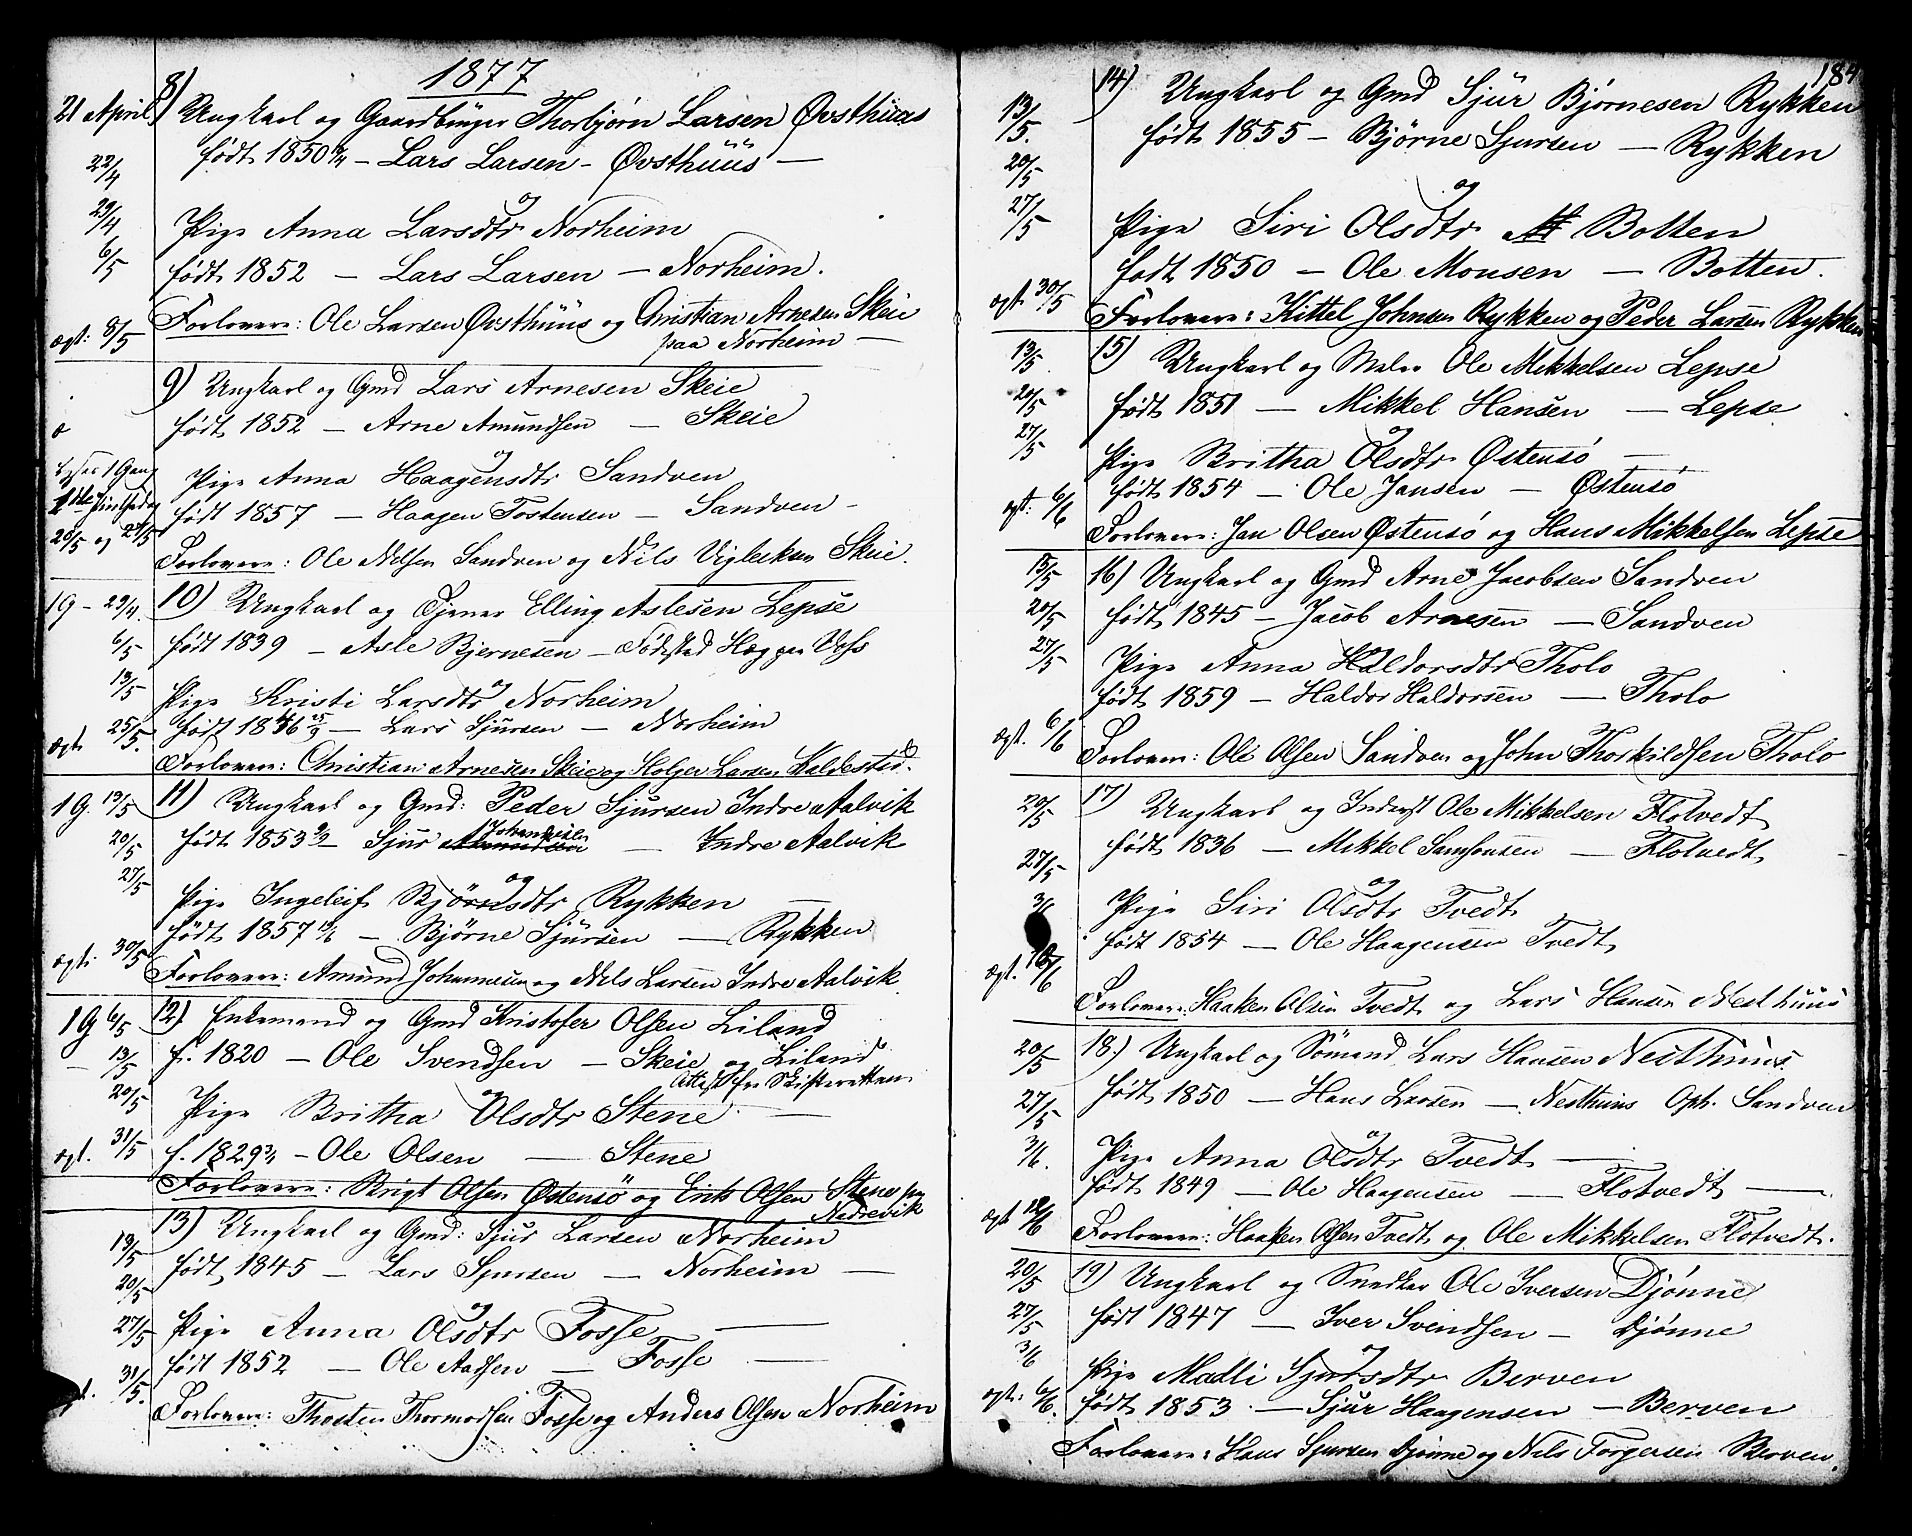 1877
21 April 8) Ungkarl og Gaardbruger Thorbjørn Larsen Øvsthuus
født 1850 — Lars Larsen — Øvsthuus —
22/4
og
29/4 Pige Anna Larsdtr Norheim
6/5 født 1852 — Lars Larsen — Norheim.
Forlovere: Ole Larsen Øvsthuus og Christian Arnesen Skeie
ægt: 8/5 paa Norheim —
9) Ungkarl og Gmd Lars Arnesen Skeie
født 1852 — Arne Amundsen — Skeie
og
lyses 1 Gang Pige Anna Haagensdtr Sandven
født 1857 — Haagen Tostensen — Sandven —
20/5 og 21/5
Forlovere: Ole Nelsen Sandven og Nils Vigleiksen Skeie.
1G — 29/4 10) Ungkarl og Tjener Elling Aslesen Lepse
6/5 født 1839 — Asle Bjernesen — Fødested Hæg paa Voss
og
13/5 Pige Kristi Larsdtr Norheim
ægt. 25/5. født 1846 25/9 — Lars Sjursen — Norheim
Forlovere: Christian Arnesen Skeie og Holger Larsen Kaldestad.
1G. 13/5 11) Ungkarl og Gmd: Peder Sjursen Indre Aalvik
Johannesen
20/5 født 1853 9/2 Sjur — Indre Aalvik
27/5
og
Pige Ingeleif Bjørnsdtr Rykken —
født 1857 — Bjørne Sjursen — Rykken
ægt. 30/5
Forlovere: Amund Johannesen og Nils Larsen Indre Aalvik.
1G 6/5 12) Enkemand og Gmd Kristofer Olsen Liland
13/5 f. 1820 — Ole Svendsen — Skeie og Liland
Attest fra Skifteretten
20/5 og
Pige Britha Olsdtr Stene —
ægt. 31/5 f. 1829 — Ole Olsen — Stene
Forlovere: Brigt Olsen Østensö og Erik Olsen Stene paa
Nedrevik
13) Ungkarl og Gmd: Sjur Larsen Norheim
13/5
20/5 født 1845 — Lars Sjursen — Norheim —
og
27/5 Pige Anna Olsdtr Fosse —
31/5. født 1852 — Ole Aadsen — Fosse —
Forlovere: Thosten Thormodsen Fosse og Anders Olsen Norheim
184
13/5. 14) Ungkarl og Gmd Sjur Bjørnesen Rykken
født 1855 — Bjørne Sjursen — Rykken
20/5
og
27/5 Pige Siri Olsdtr Botten
født 1850 — Ole Monsen — Botten.
ægt. 30/5 Forlovere: Kittel Johnsen Rykken og Peder Larsen Rykken
13/5 15) Ungkarl og Maler Ole Mikkelsen Lepse
20/5 født 1851 — Mikkel Hansen — Lepse
og
27/5 Pige Britha Olsdtr Østensö —
født 1854 — Ole Jansen — Østensö
ægt: 6/6
Forlovere: Jan Olsen Østensö og Hans Mikkelsen Lepse
13/5 16) Ungkarl og Gmd Arne Jacobsen Sandven
20/5 født 1845 — Jacob Arnesen — Sandven
og
27/5 Pige Anna Haldorsdtr Tholo
født 1859 — Haldor Haldorsen — Tholo
ægt. 6/6
Forlovere: Ole Olsen Sandven og John Thorkildsen Tholo
20/5 17) Ungkarl og Inderst Ole Mikkelsen Flotvedt
født 1836 — Mikkel Samsonsen — Flotvedt
27/5
og
3/6 Pige Siri Olsdtr Tvedt
født 1854 — Ole Haagensen Tvedt
ægt.
Forlovere: Haaken Olsen Tvedt og Lars Hansen Nesthuus
20/5 18.) Ungkarl og Sömand Lars Hansen Nesthuus.
27/5 født 1850 — Hans Larsen — Nesthuus Oph. Sandven
og
3/6. Pige Anna Olsdtr Tvedt —
født 1849 — Ole Haagensen — Flotvedt —
ægt
Forlovere: Haaken Olsen Tvedt og Ole Mikkelsen Flotvedt.
20/5 19) Ungkarl og Snedker Ole Iversen Djønne
27/5 født 1847 — Iver Svendsen — Djønne
3/6 og
Pige Madli Sjursdtr Berven
ægt: 6/6. født 1853 — Sjur Haagensen — Berven
Forlovere: Hans Sjursen Djønne og Nils Torgersen Berven.